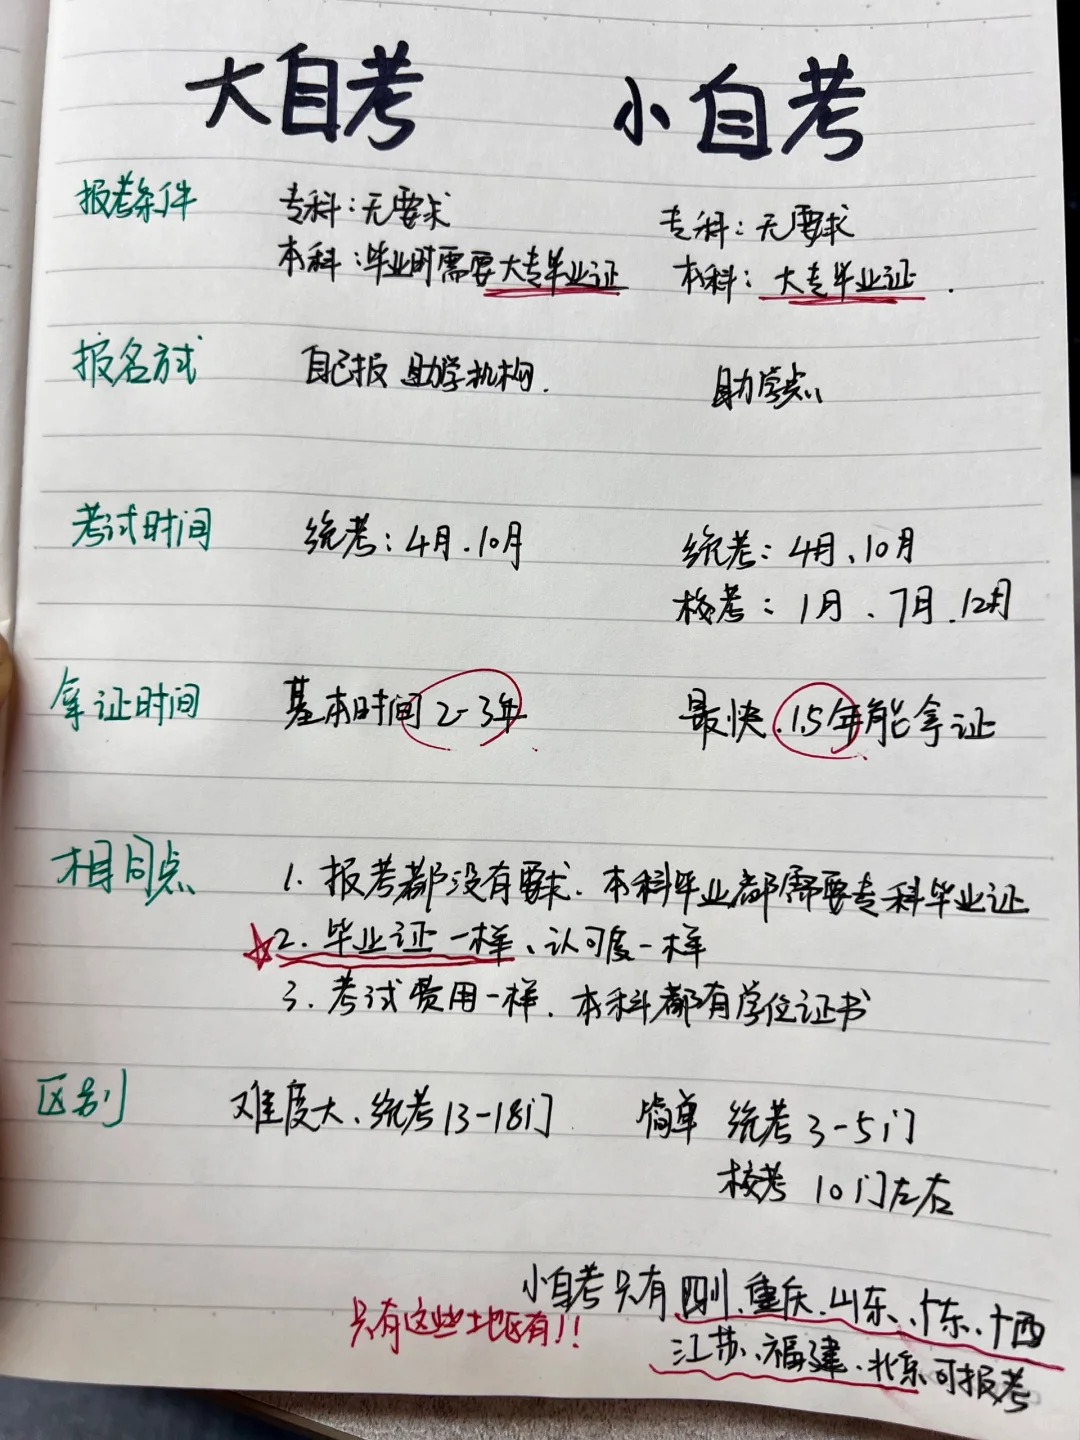 大自考 小自考
报考条件 专科:无要求 专科:无要求
本科:毕业时需要大专毕业证 本科:大专毕业证.
报名方式 自己报 助学机构. 助学点
考试时间 统考:4月.10月 统考:4月、10月
校考:1月、7月.12月
拿证时间 基本时间2-3年 最快1.5年能拿证
相同点 1.报考都没有要求.本科毕业都需要专科毕业证
2.毕业证一样、认可度一样
3.考试费用一样.本科都有学位证书
区别 难度大、统考13-18门 简单 统考3-5门
校考 10门左右
小自考只有四川、重庆、山东、广东、广西
只有这些地区有!! 江苏、福建、北京可报考